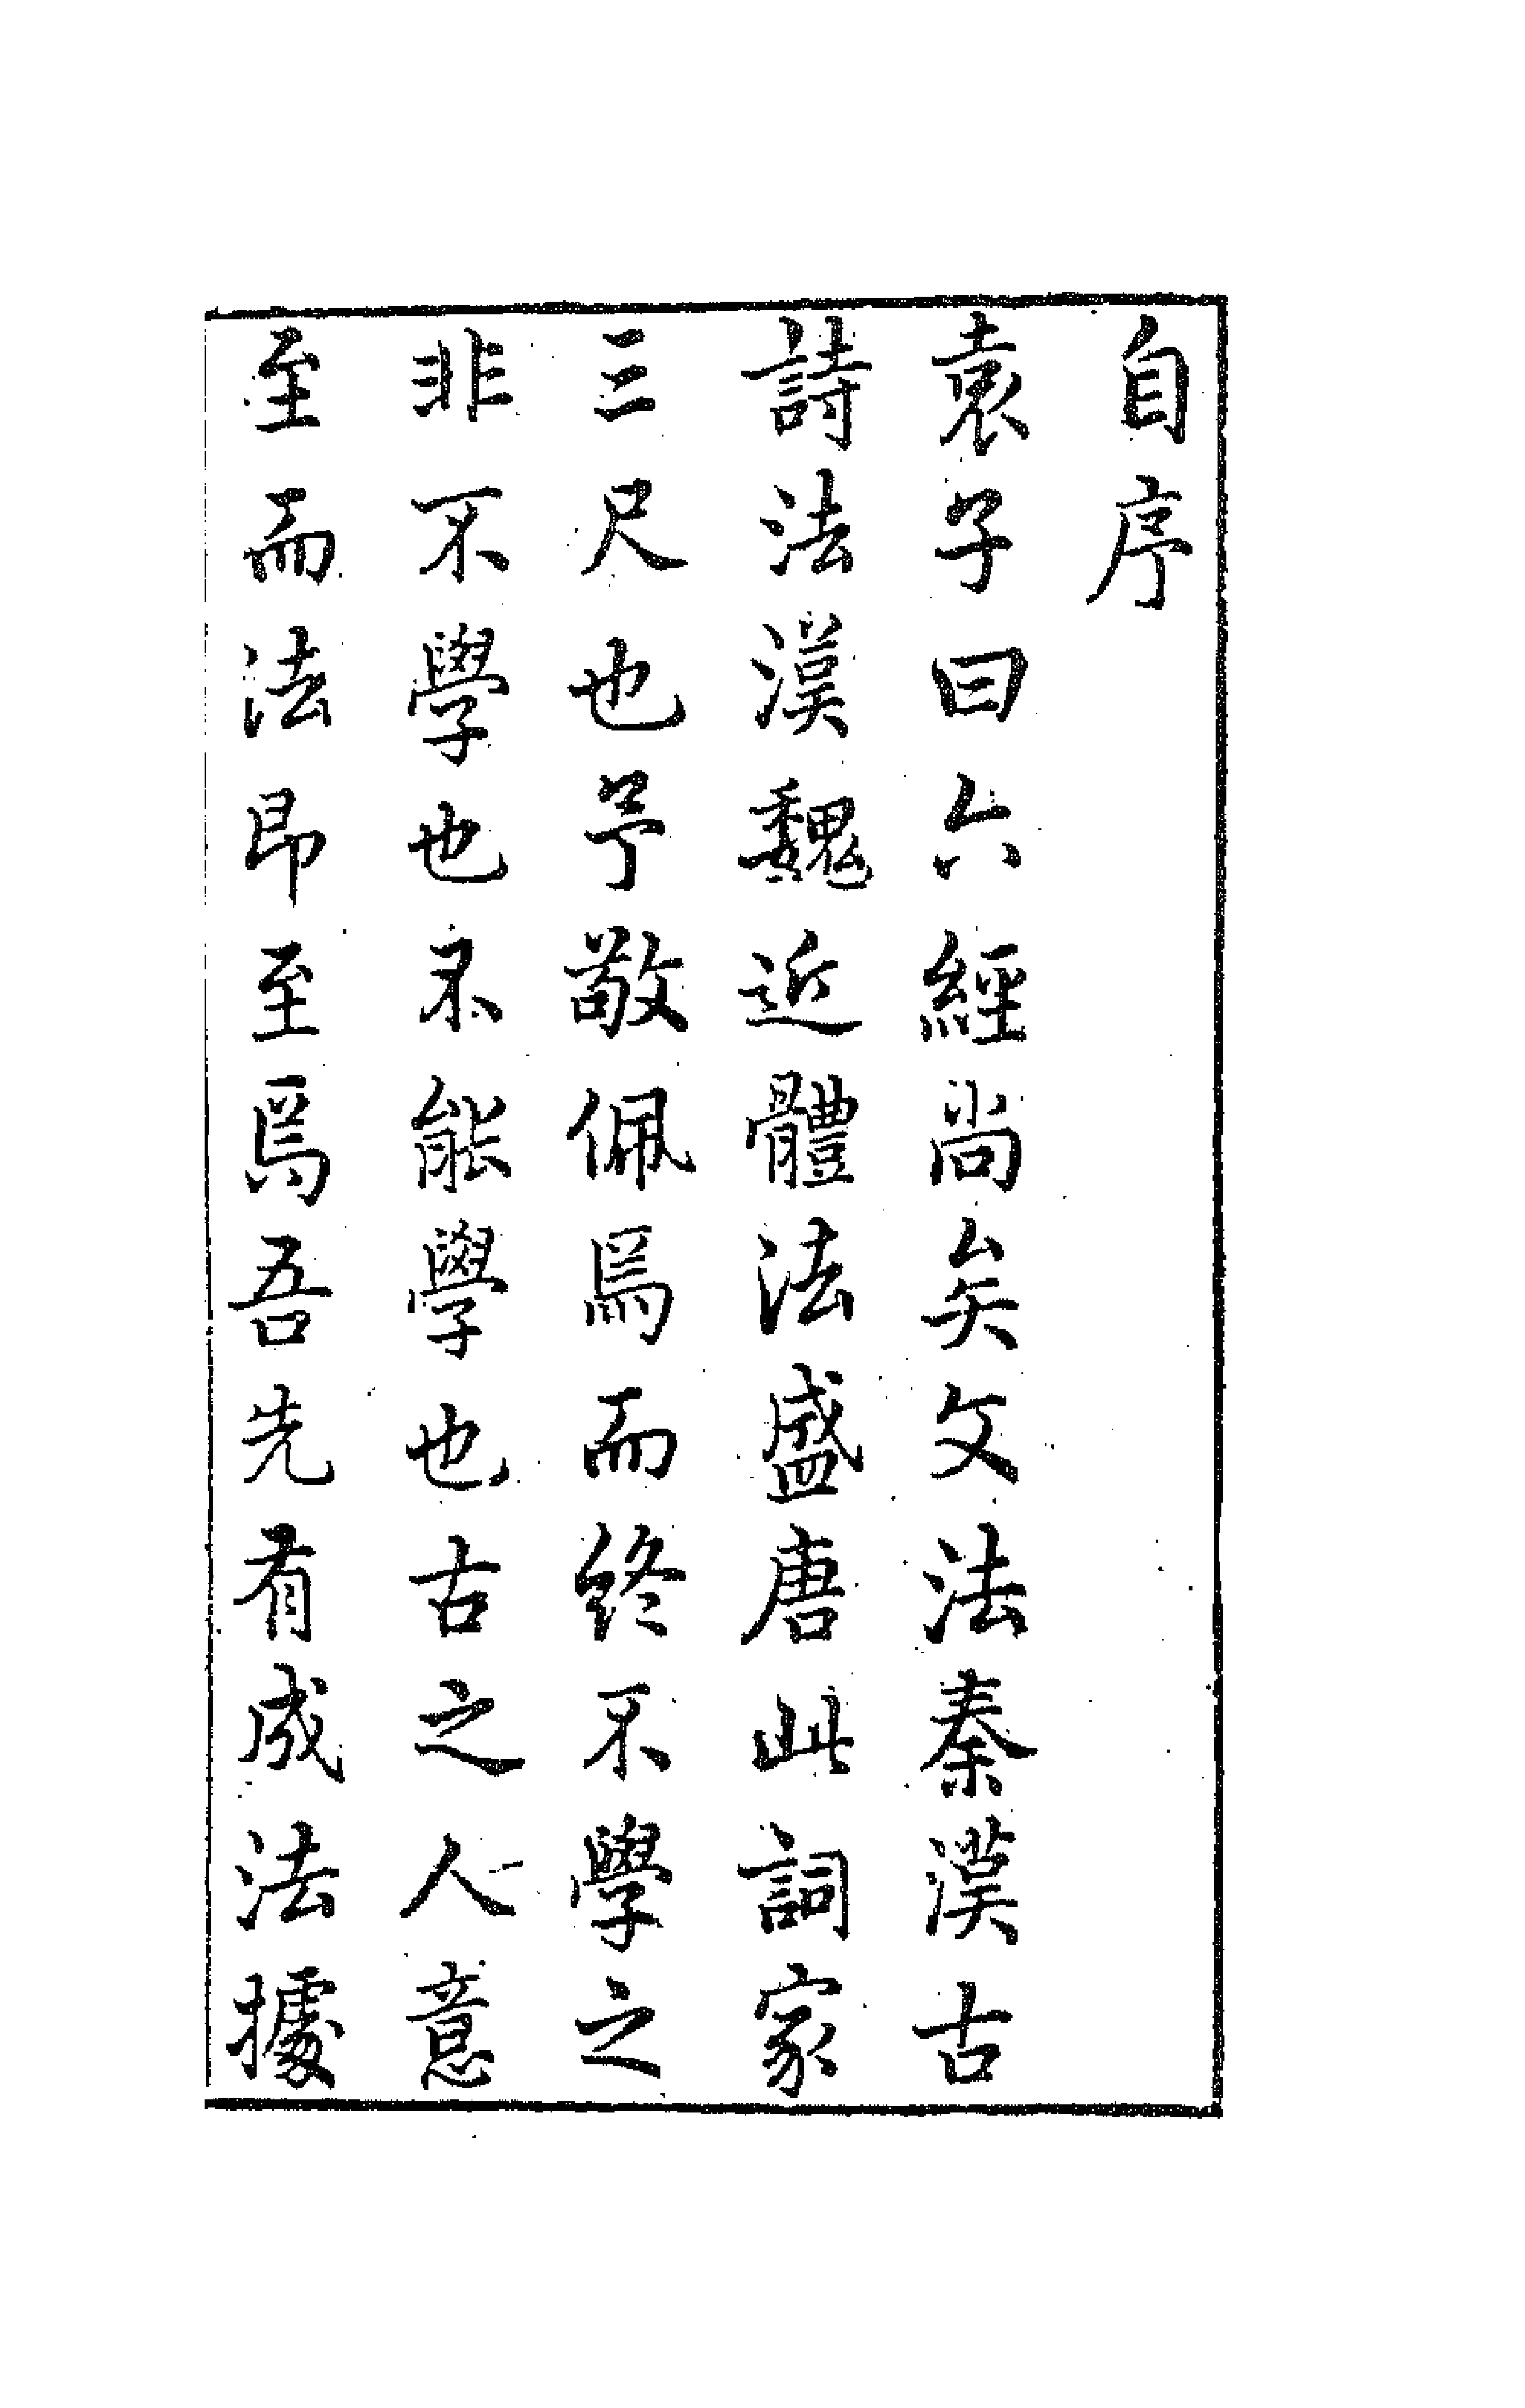 自序
袁子曰六經尚矣文法秦漢古
詩法漢魏近體法盛唐此詞家
三尺也予敬佩焉而終不學之
非不學也不能學也古之人意
至而法卽至焉吾先有成法據